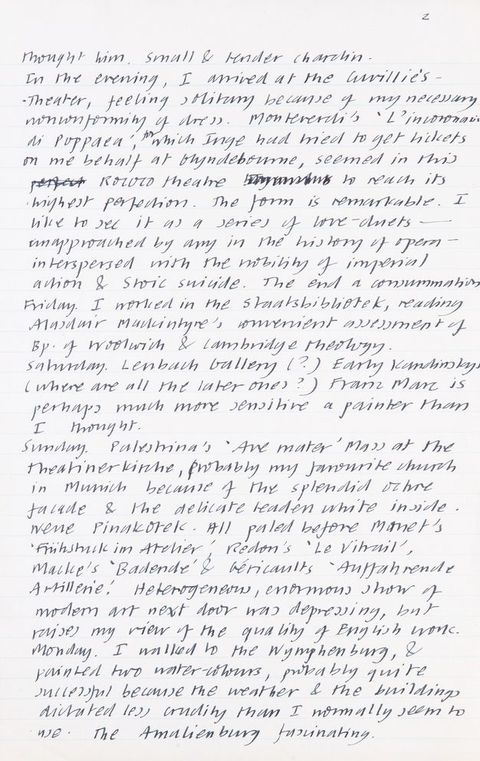 2
thought him. Small & tender chardin.
In the evening, I arrived at the Cuvilliés-
Theater, feeling solitary because of my necessary
nonconformity of dress. Monteverdi's 'L'incoronazi
di Poppaea', for which Inge had tried to get tickets
on me behalf at Glyndebourne, seemed in this
perfect Rococo theatre to reach its
highest perfection. The form is remarkable. I
like to see it as a series of love-duets —
unapproached by any in the history of opera —
interspersed with the nobility of imperial
action & Stoic suicide. The end a consummation
Friday. I worked in the Staatsbibliotek, reading
Alasdair Mackintyre's convenient assessment of
Bp. of Woolwich & Cambridge theology.
Saturday. Lenbach Gallery (?) Early Kandinskys
(where are all the later ones?) Franz Marc is
perhaps much more sensitive a painter than
I thought.
Sunday. Palestrina's 'Ave mater' Mass at the
Theatinerkirche, probably my favourite church
in Munich because of the splendid ochre
facade & the delicate leaden white inside.
Neue Pinakotek. All paled before Monet's
'Frühstuck im Atelier', Redon's 'Le Vitrail',
Macke's 'Badende' & Géricaults 'Auffahrende
Artillerie'. Heterogeneous, enormous show of
modern art next door was depressing, but
raises my view of the quality of English work.
Monday. I walked to the Nymphenburg, &
painted two water-colours, probably quite
successful because the weather & the buildings
dictated less crudity than I normally seem to
use. The Amalienburg fascinating.